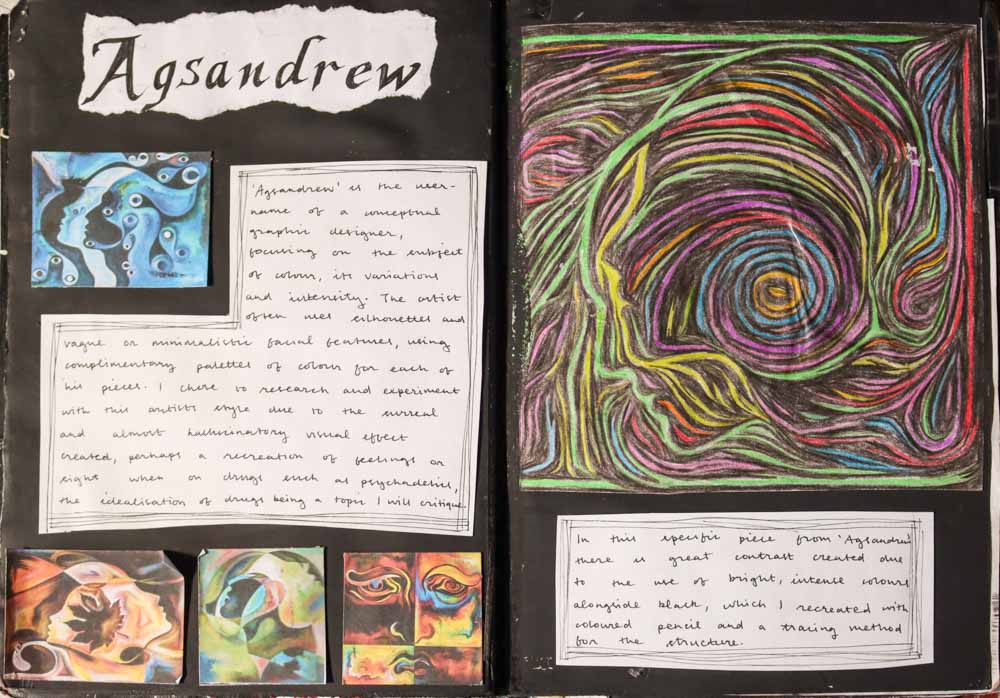 Agsandrew
'Agsandrew' is the user-
name of a conceptual
graphic designer,
focusing on the subject
of colour, its variations
and intensity. The artist
often uses silhouettes and
vague or minimalistic facial features, using
complimentary palettes of colour for each of
his pieces. I chose to research and experiment
with this artists style due to the surreal
and almost hallucinatory visual effect
created, perhaps a recreation of feelings or
sight when on drugs such as psychadelics,
the idealisation of drugs being a topic I will critique.
In this specific piece from 'Agsandrew'
there is great contrast created due
to the use of bright, intense colours
alongside black, which I recreated with
coloured pencil and a tracing method
for the structure.